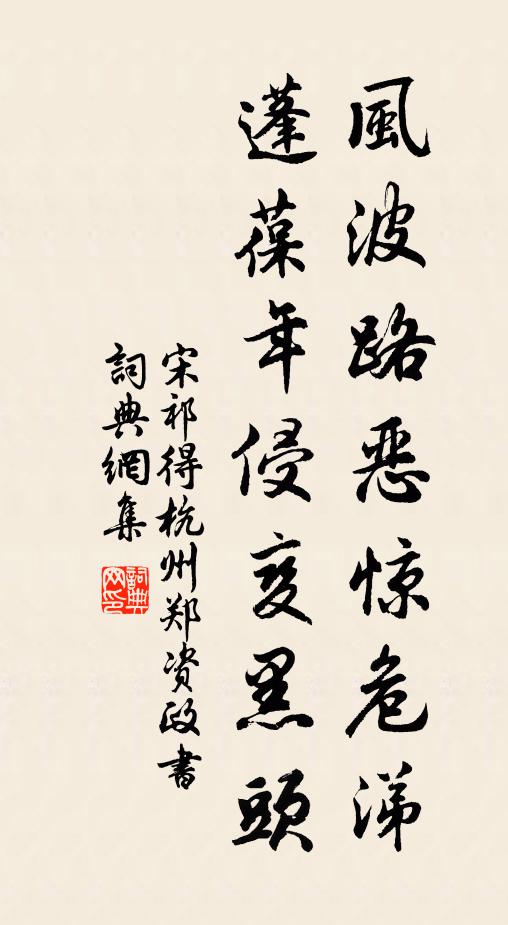 風波路惡惊危涕
蓬葆年侵变黑頭
宋祁得杭州郑资政書
詞典網集
詞典网印